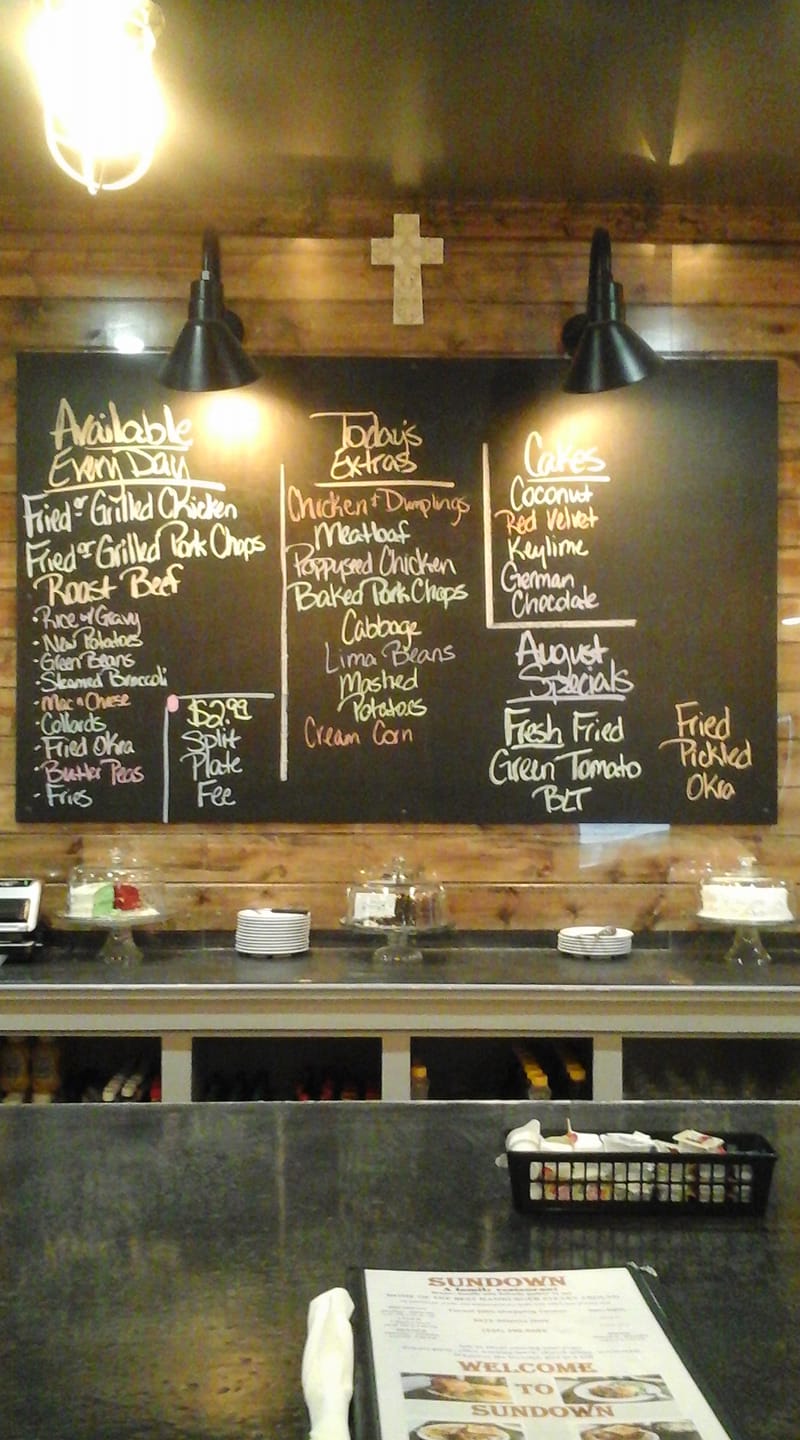 Available
Every Day
Fried or Grilled Chicken
Fried or Grilled Pork Chops
Roast Beef
• Rice w/ Gravy
• New Potatoes
• Green Beans
• Steamed Broccoli
• Mac n Cheese
• Collards
• Fried Okra
• Butter Peas
• Fries
$2.99
Split
Plate
Fee
Today's
Extras
Chicken & Dumplings
Meatloaf
Poppyseed Chicken
Baked Pork Chops
Cabbage
Lima Beans
Mashed
Potatoes
Cream Corn
Cakes
Coconut
Red Velvet
Keylime
German
Chocolate
August
Specials
Fresh Fried
Green Tomato
BLT
Fried
Pickled
Okra
SUNDOWN
A family restaurant
WELCOME
TO
SUNDOWN